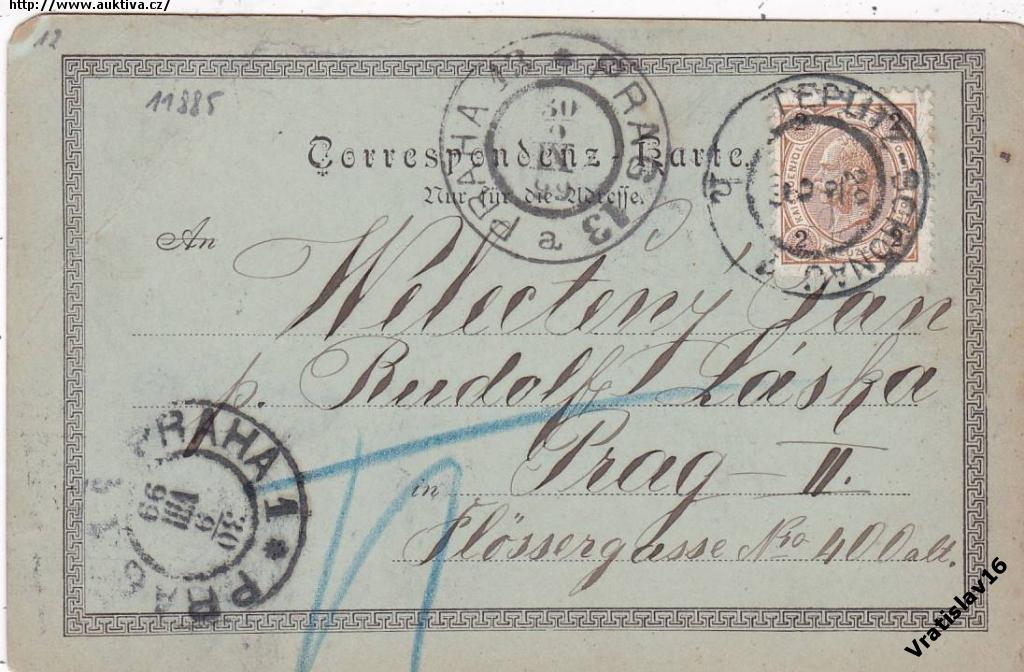 http://www.auktiva.cz/
12
11885
Correspondenz-Karte.
Nur für die Adresse.
PRAHA 13 * PRAG 13
30
IX
99
a
TEPLITZ-SCHÖNAU
2 2
2 2
An Welectený Pan
p. Rudolf Láska
in Prag - II.
Flössergasse No 400 alt.
PRAHA 1 * PRAG 1
30
9
VIII
99
Vratislav16